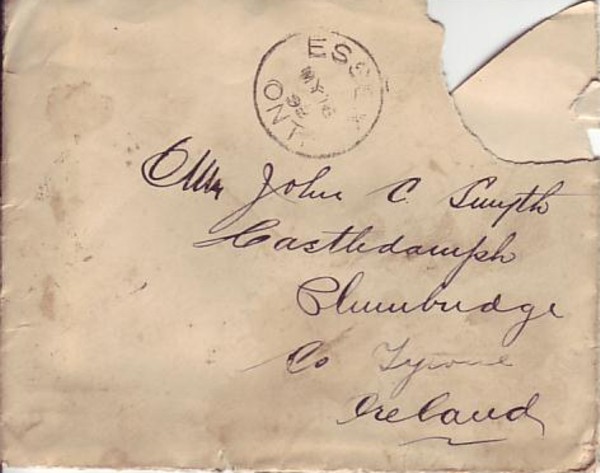 ESSEX
MY 16
ONT.
Mr John C Smyth
Castledamph
Plumbridge
Co Tyrone
Ireland